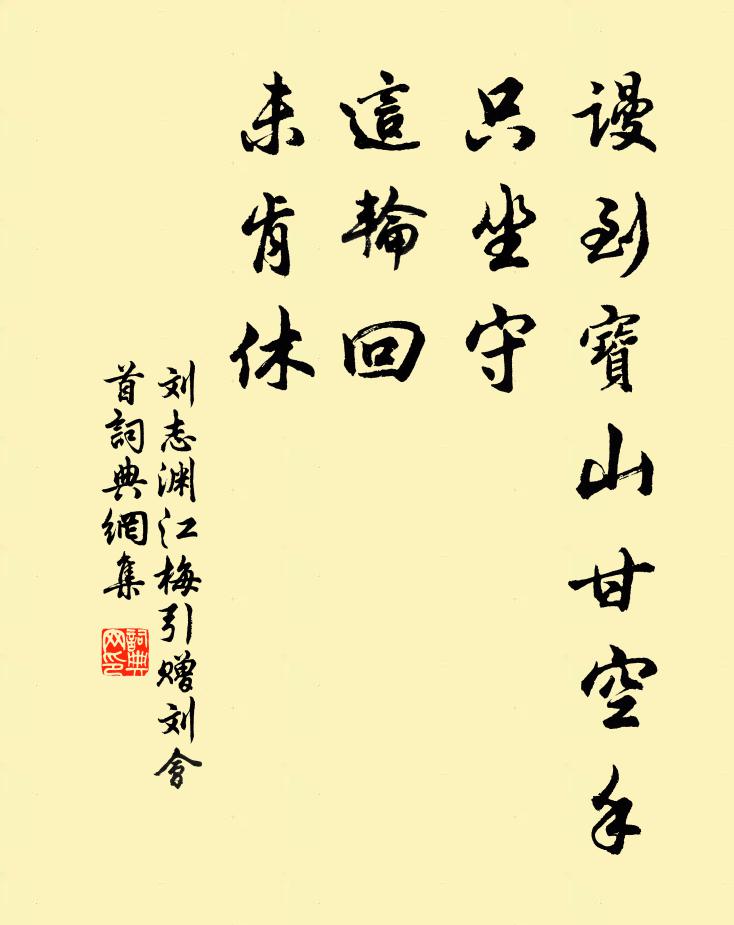 谩到寶山甘空手
只坐守
這輪回
未肯休
刘志渊江梅引赠刘會
首詞典網集
詞典网印